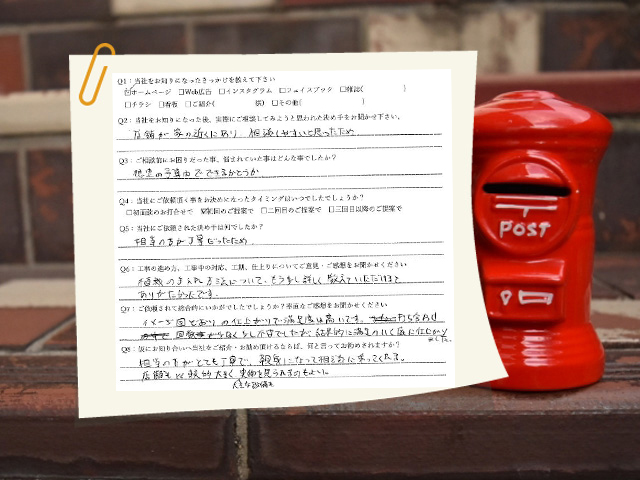 Q1：当社をお知りになったきっかけを教えて下さい
☑ホームページ □Web広告 □インスタグラム □フェイスブック □雑誌( )
□チラシ □看板 □ご紹介( 様) □その他( )
Q2：当社をお知りになった後、実際にご相談してみようと思われた決め手をお聞かせ下さい。
店舗が家の近くにあり、相談しやすいと思ったため
Q3：ご相談前にお困りだった事、悩まれていた事はどんな事でしたか？
想定の予算内でできるかどうか
Q4：当社にご依頼頂く事をお決めになったタイミングはいつでしたでしょうか？
□初面談のお打合せで ☑初回のご提案で □二回目のご提案で □三回目以降のご提案で
Q5：当社にご依頼された決め手は何でしたか？
担当の方が丁寧だったため
Q6：工事の進め方、工事中の対応、工期、仕上りについてご意見・ご感想をお聞かせください
植栽の手入れ方法について、もう少し詳しく教えていただけると
ありがたかったです。
Q7：ご依頼されて総合的にいかがでしたでしょうか？率直なご感想をお聞かせください
イメージ図どおりの仕上がりで満足度は高いです。打ち合わせ
回数が少なく少し不安でしたが、結果的に満足のいく庭に仕上がり
ました。
Q8：仮にお知り合いへ当社をご紹介・お勧め頂けるならば、何と言ってお勧めされますか？
担当の方がとても丁寧で、親身になって相談に乗ってくれる。
店舗も比較的大きく、実物を見られるのもよい。
POST